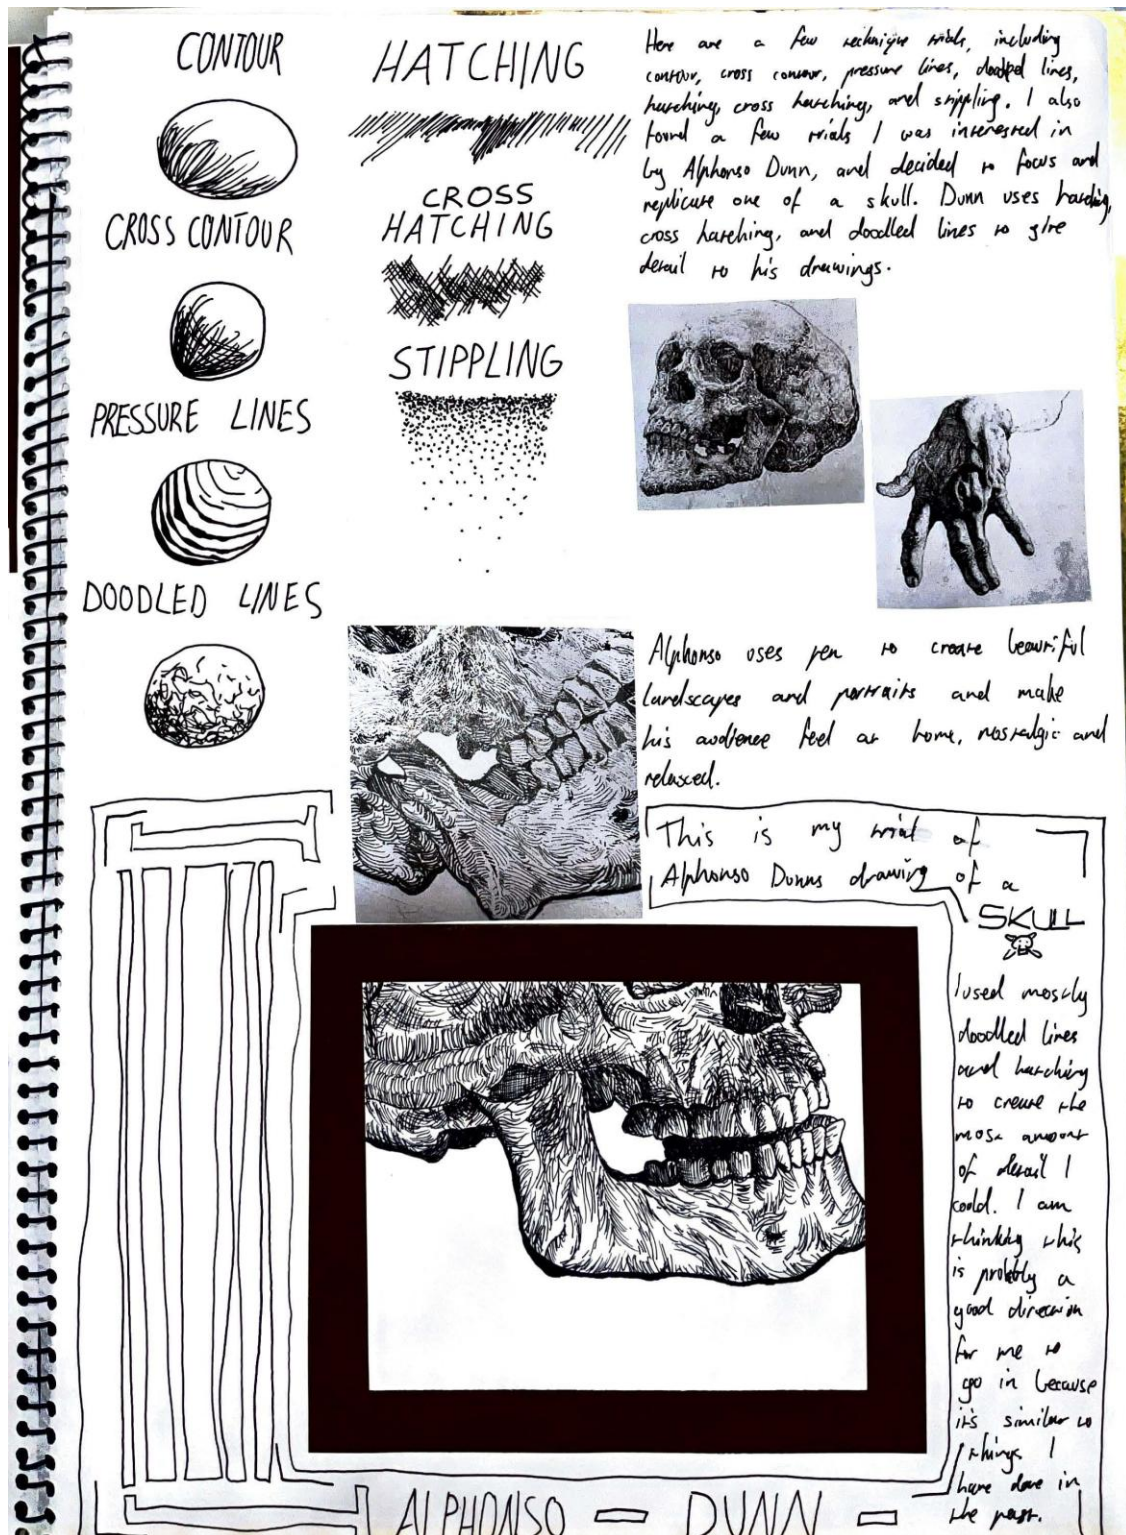 CONTOUR
CROSS CONTOUR
PRESSURE LINES
DOODLED LINES
HATCHING
CROSS
HATCHING
STIPPLING
Here are a few technique trials, including
contour, cross contour, pressure lines, doodled lines,
hatching, cross hatching, and stippling. I also
found a few trials I was interested in
by Alphonso Dunn, and decided to focus and
replicate one of a skull. Dunn uses hatching,
cross hatching, and doodled lines to give
detail to his drawings.
Alphonso uses pen to create beautiful
landscapes and portraits and make
his audience feel at home, nostalgic and
relaxed.
This is my trial of
Alphonso Dunns drawing of a
SKULL
I used mostly
doodled lines
and hatching
to create the
most amount
of detail I
could. I am
thinking this
is probably a
good direction
for me to
go in because
it's similar to
things I
have done in
the past.
ALPHONSO - DUNN -